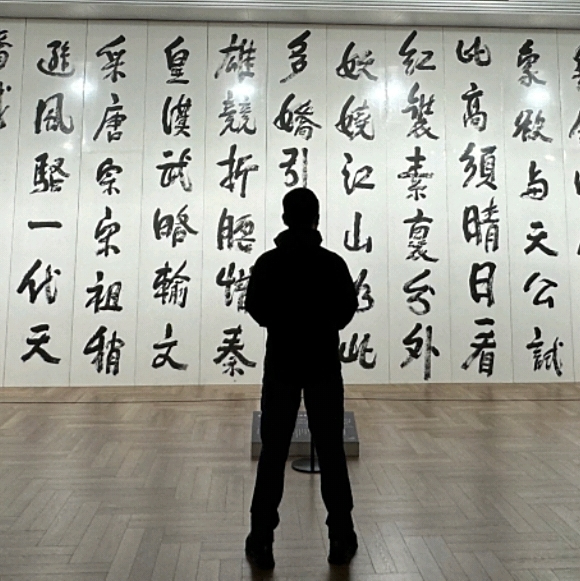 象欲与天公試
比高須晴日看
紅裝素裹分外
妖嬈江山如此
多嬌引
雄競折腰惜秦
皇漢武略輸文
采唐宗宋祖稍
遜風騷一代天